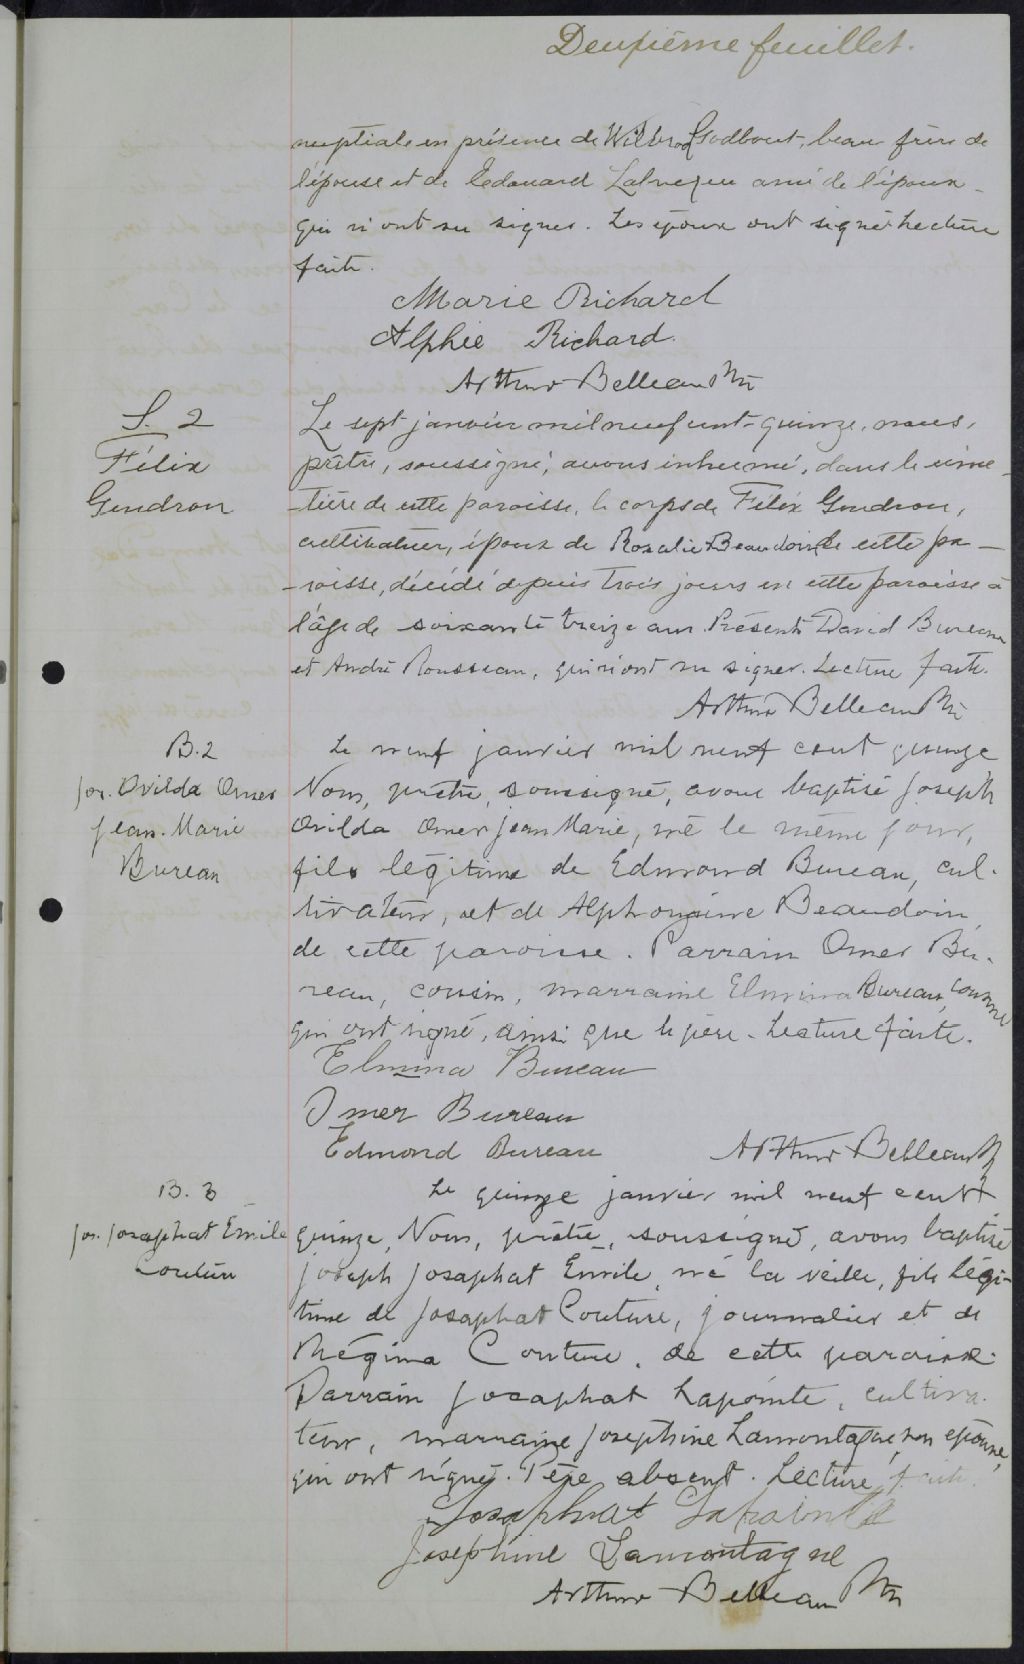 Deuxième feuillet.
nuptiale en présence de Wilbrod Godbout, beau frère de
l'épouse et de Edouard ami de l'époux
qui n'ont su signer. Les époux ont signé. Lecture
faite.
Marie Richard
Alphée Richard.
Arthur Belleau Ptre
S. 2
Félix
Gendron
Le sept janvier mil neuf cent-quinze, nous,
prêtre, soussigné, avons inhumé, dans le cime-
-tière de cette paroisse, le corps de Félix Gendron,
cultivateur, époux de Rosalie Beaudoin de cette pa-
-roisse, décédé depuis trois jours en cette paroisse à
l'âge de soixante treize ans. Présents David Bureau
et André Rousseau, qui n'ont su signer. Lecture faite.
Arthur Belleau Ptre
B. 2
Jos. Ovilda Omer
Jean-Marie
Bureau
Le neuf janvier mil neuf cent quinze
Nous, prêtre, soussigné, avons baptisé Joseph
Ovilda Omer Jean Marie, né le même jour,
fils légitime de Edmond Bureau, cul-
tivateur, et de Alphonsine Beaudoin
de cette paroisse. Parrain Omer Bu-
reau, cousin, marraine Elmina Bureau, cousine
qui ont signé, ainsi que le père. Lecture faite.
Elmina Bureau
Omer Bureau
Edmond Bureau
Arthur Belleau Ptre
B. 3
Jos. Josaphat Émile
Couture
Le quinze janvier mil neuf cent
quinze, Nous, prêtre, soussigné, avons baptisé
Joseph Josaphat Emile, né la veille, fils légi-
time de Josaphat Couture, journalier et de
Régina Couture, de cette paroisse.
Parrain Josaphat Lapointe, cultiva-
teur, marraine Josephine Lamontagne, son épouse,
qui ont signé. Père absent. Lecture faite.
Josaphat Lapointe
Joséphine Lamontagne
Arthur Belleau Ptre